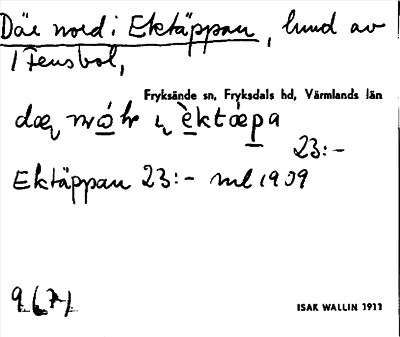 Där nord i Ektäppan, lund av
1 Tensbol,
Fryksände sn, Fryksdals hd, Värmlands län
23:-
Ektäppan 23:- ml 1909
9 (7)
ISAK WALLIN 1911